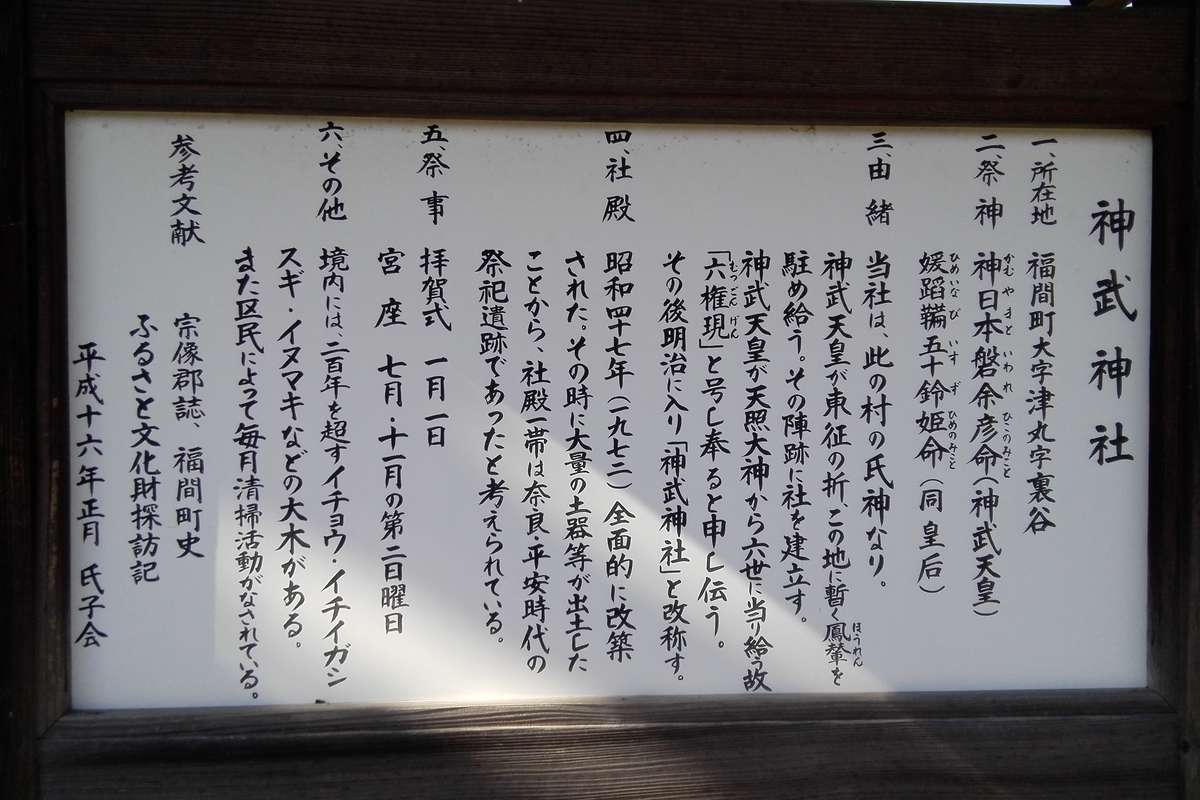 神武神社
一、所在地　福間町大字津丸字裏谷
二、祭神　神日本磐余彦命（神武天皇）
かむやまといわれひこのみこと
媛蹈鞴五十鈴姫命（同皇后）
ひめいなびいすずひめのみこと
三、由緒　当社は、此の村の氏神なり。
神武天皇が東征の折、この地に暫く鳳輦を
ほうれん
駐め給う。その陣跡に社を建立す。
神武天皇が天照大神から六世に当り給う故
「六権現」と号し奉ると申し伝う。
むつごんげん
その後明治に入り「神武神社」と改称す。
四、社殿　昭和四十七年（一九七二）全面的に改築
された。その時に大量の土器等が出土した
ことから、社殿一帯は奈良・平安時代の
祭祀遺跡であったと考えられている。
五、祭事　拝賀式　一月一日
宮座　七月・十一月の第二日曜日
六、その他　境内には、二百年を超すイチョウ・イチイガシ
スギ・イヌマキなどの大木がある。
また区民によって毎月清掃活動がなされている。
参考文献　宗像郡誌、福間町史
ふるさと文化財探訪記
平成十六年正月　氏子会